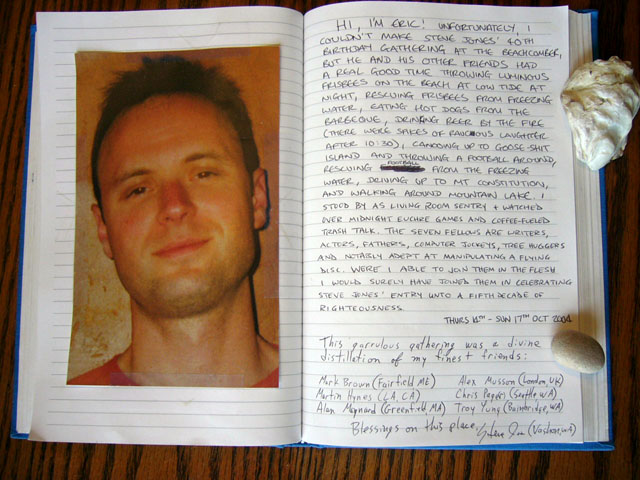 HI, I'M ERIC! UNFORTUNATELY, I
COULDN'T MAKE STEVE JONES' 40TH
BIRTHDAY GATHERING AT THE BEACHCOMBER,
BUT HE AND HIS OTHER FRIENDS HAD
A REAL GOOD TIME THROWING LUMINOUS
FRISBEES ON THE BEACH AT LOW TIDE AT
NIGHT, RESCUING FRISBEES FROM FREEZING
WATER, EATING HOT DOGS FROM THE
BARBEQUE, DRINKING BEER BY THE FIRE
(THERE WERE SPIKES OF RAUCOUS LAUGHTER
AFTER 10:30), CANOEING UP TO GOOSE-SHIT
ISLAND AND THROWING A FOOTBALL AROUND,
RESCUING FOOTBALL FROM THE FREEZING
WATER, DRIVING UP TO MT. CONSTITUTION,
AND WALKING AROUND MOUNTAIN LAKE. I
STOOD BY AS LIVING ROOM SENTRY + WATCHED
OVER MIDNIGHT EUCHRE GAMES AND COFFEE-FUELED
TRASH TALK. THE SEVEN FELLOWS ARE WRITERS,
ACTORS, FATHERS, COMPUTER JOCKEYS, TREE HUGGERS
AND NOTABLY ADEPT AT MANIPULATING A FLYING
DISC. WERE I ABLE TO JOIN THEM IN THE FLESH
I WOULD SURELY HAVE JOINED THEM IN CELEBRATING
STEVE JONES' ENTRY UNTO A FIFTH DECADE OF
RIGHTEOUSNESS.
THURS 14TH - SUN 17TH OCT 2004
This garrulous gathering was a divine
distillation of my finest friends:
Mark Brown (Fairfield ME) Alex Musson (London, UK)
Martin Hynes (LA, CA) Chris (Seattle, WA)
Alan Maynard (Greenfield, MA) Troy Yung (Bainbridge, WA)
Blessings on this place, Steve (Vashon, WA)